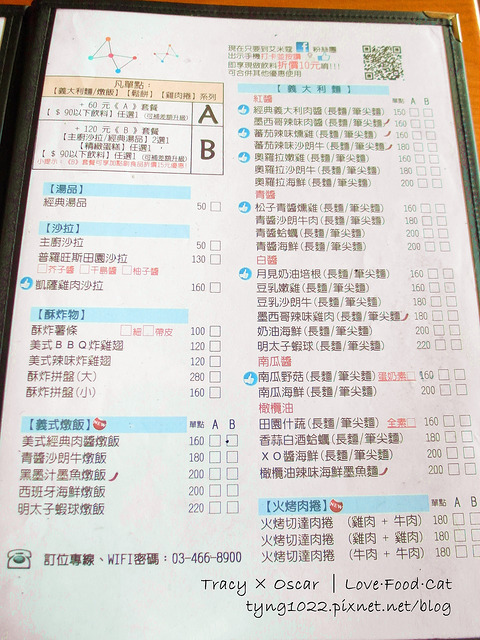 現在只要到艾米蔻 f 粉絲團
出示手機打卡並按讚
即享現做飲料折價10元唷!!!
可合併其他優惠使用
凡單點:
【義大利麵/燉飯】【鬆餅】【雞肉捲】系列
+60元《A》套餐
【$90以下飲料】任選1 (可補差額升級)
A
+120元《B》套餐
【主廚沙拉/經典湯品】2選1
【精緻蛋糕】任選1
【$90以下飲料】任選1 (可補差額升級)
B
【湯品】
經典湯品 50
【沙拉】
主廚沙拉 50
普羅旺斯田園沙拉 130
芥子醬 千島醬 柚子醬
凱薩雞肉沙拉 160
【酥炸物】
酥炸薯條 細 帶皮 100
美式BBQ炸雞翅 120
美式辣味炸雞翅 120
酥炸拼盤(大) 280
酥炸拼盤(小) 160
【義式燉飯】 單點 A B
美式經典肉醬燉飯 160
青醬沙朗牛燉飯 180
黑墨汁墨魚燉飯 200
西班牙海鮮燉飯 200
明太子蝦球燉飯 220
【義大利麵】
紅醬 單點 A B
經典義大利肉醬(長麵/筆尖麵) 150
墨西哥辣味肉醬(長麵/筆尖麵) 160
蕃茄辣味燻雞(長麵/筆尖麵) 160
蕃茄辣味沙朗牛(長麵/筆尖麵) 180
奧羅拉嫩雞(長麵/筆尖麵) 160
奧羅拉沙朗牛(長麵/筆尖麵) 180
奧羅拉海鮮(長麵/筆尖麵) 200
青醬
松子青醬燻雞(長麵/筆尖麵) 160
青醬沙朗牛肉(長麵/筆尖麵) 180
青醬蛤蠣(長麵/筆尖麵) 200
青醬海鮮(長麵/筆尖麵) 200
白醬
月見奶油培根(長麵/筆尖麵) 160
豆乳嫩雞(長麵/筆尖麵) 160
豆乳沙朗牛(長麵/筆尖麵) 180
墨西哥辣味雞肉(長麵/筆尖麵) 180
奶油海鮮(長麵/筆尖麵) 200
明太子蝦球(長麵/筆尖麵) 220
南瓜醬
南瓜野菇(長麵/筆尖麵) 蛋奶素 160
南瓜海鮮(長麵/筆尖麵) 200
橄欖油
田園什蔬(長麵/筆尖麵) 全素 160
香蒜白酒蛤蠣(長麵/筆尖麵) 180
XO醬海鮮(長麵/筆尖麵) 200
橄欖油辣味海鮮墨魚麵 200
【火烤肉捲】 單點 A B
火烤切達肉捲 (雞肉 + 牛肉) 180
火烤切達肉捲 (雞肉 + 雞肉) 180
火烤切達肉捲 (牛肉 + 牛肉) 180
訂位專線、WIFI密碼:03-466-8900
Tracy X Oscar | Love·Food·Cat
tyng1022.pixnet.net/blog